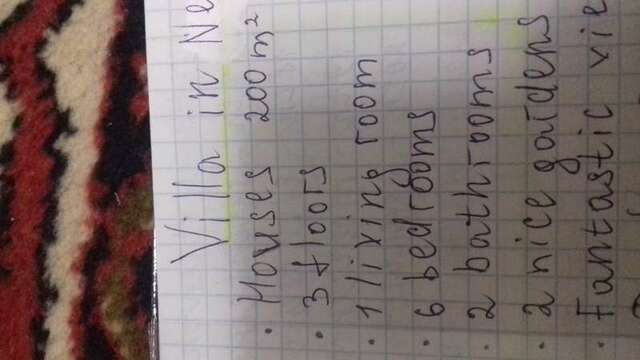 Villa in Ne
• Houses 200 m²
• 3 floors
• 1 living room
• 6 bedrooms
• 2 bathrooms
• 2 nice gardens
• Fantastic vie